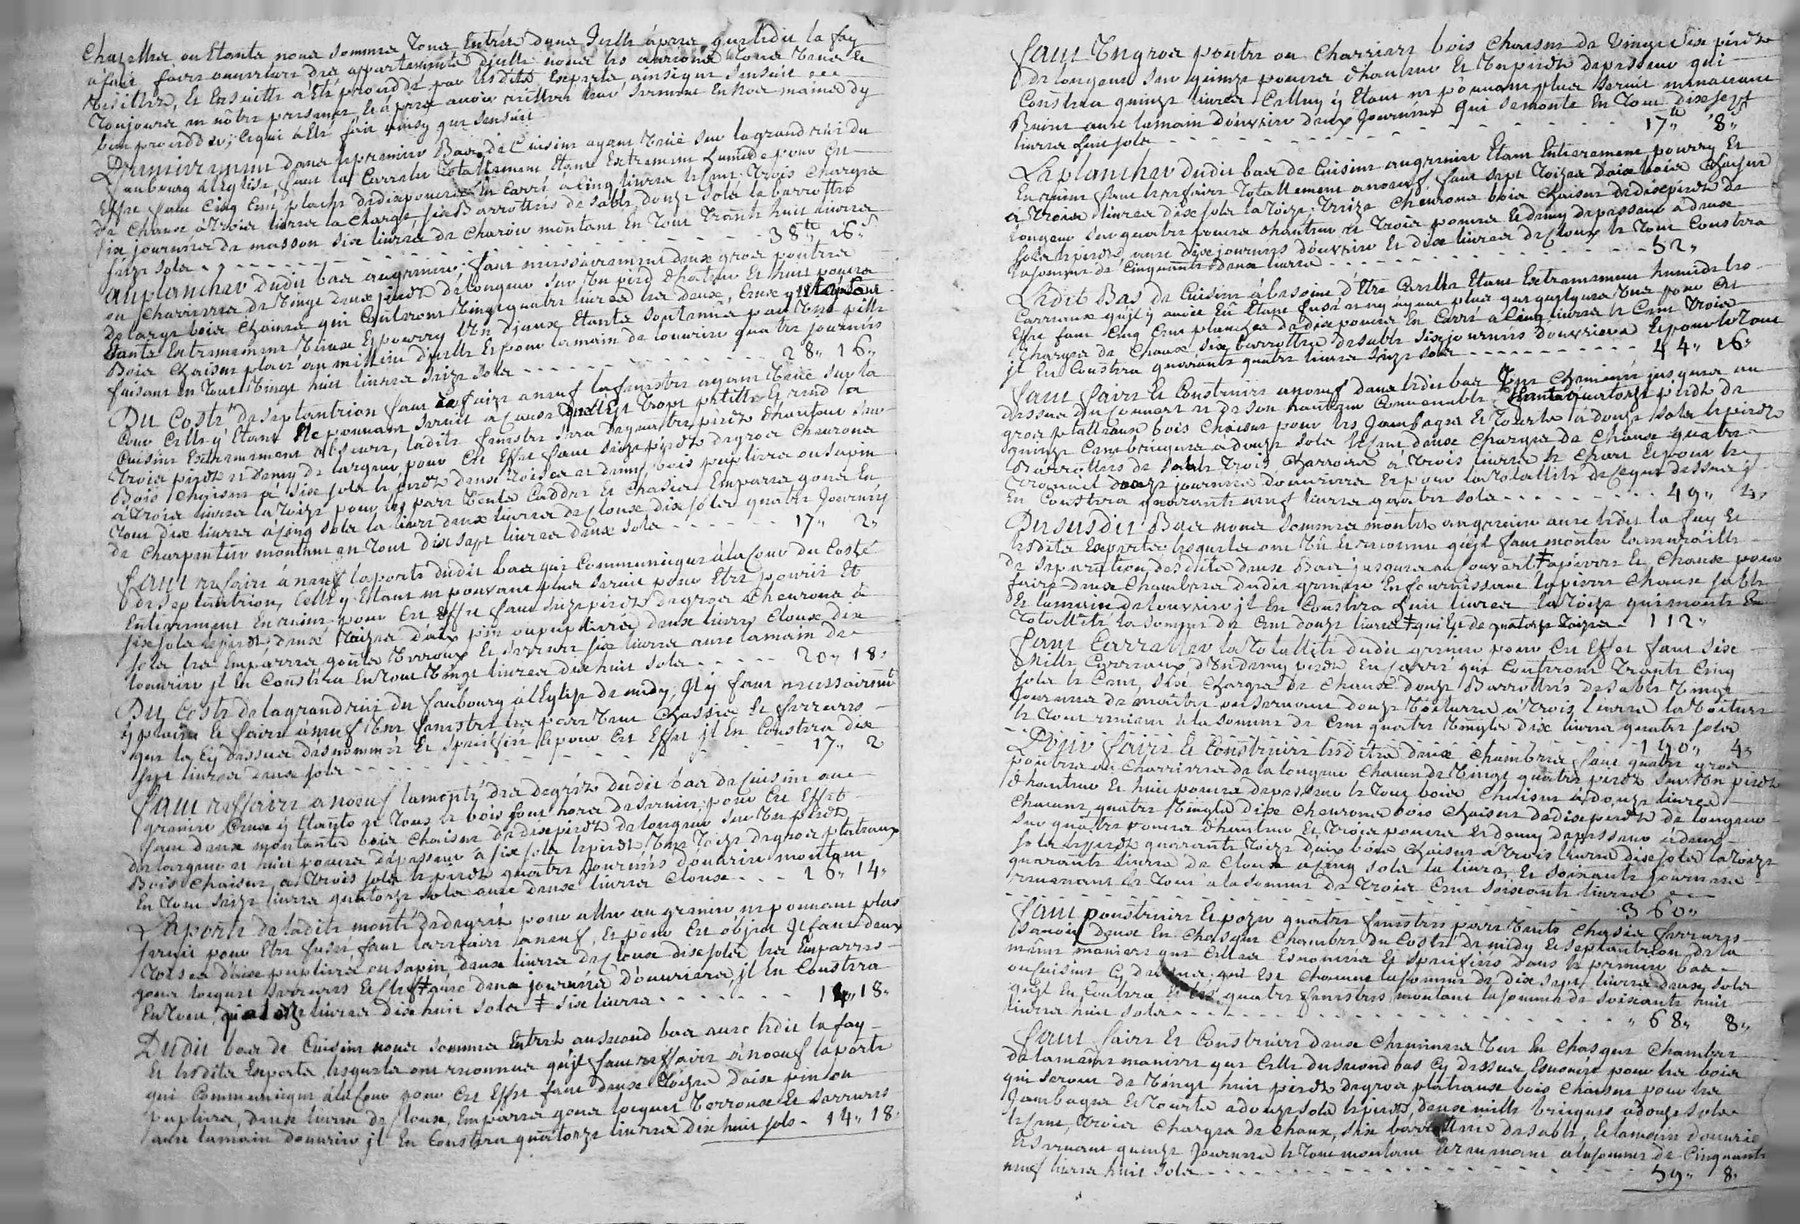 Chazelles ou Etants nous sommes tous Entrés dans Jcelle apres que ledit la fay
a fait faire ouverture des appartements d'jcelle nous les avrions tous Veue et
Visittée, Et Ensuitte a été procédé par lesdits Experts ainsi que sensuit
toujours en nôtre presence Et apres avoir reittéré leur serment En nos mains d'y
bien proceder; Ce qui a été fait ainsy que sensuit
Premierement dans le premier Bas de Cuisine ayant Veüe sur la grand rüe du
faubourg a l'Eglise, faut la Carreler totallement Etant Extremem.t humide pour Cet
Effet faut Cinq Cent plachs de dix pouces En Carré a Cinq livres le Cent trois Charges
de Chaux a trois livres la Charge six Barrottées de sable douze sols la barrottée
six journées de masson six livres de Charois montant En tout trente huit livres
seize sols - - - 38ᵗᵗ 16ˢ
au plancher dudit bas au grenier faut necessairement deux gros poutres
ou Charrieres de Vingt deux pieds de longeur sur Un pied d'hauteur Et huit pouces
de large bois Chaisne qui Coûteront Vingt quatre livres les deux, Ceux qui
Etants Extremement Vieux Et pourry l'Un d'jceux Etants soutenus par Une pille
Bois Chaisne placé au millieu d'jcelle Et pour la main de l'ouvrier quatre journées
faisant en tout Vingt huit livres seize sols - - - 28" 16"
Du Costé de septantrion faut faire a neuf la fenestre ayant Veüe sur la
Cour Celle y Etant Ne pouvant servir a Cause quelle Est trops petitte Et rend la
Cuisine Extremement obscure, ladite fenestre sera de quatre pieds d'hauteur sur
trois pieds et demy de largeur pour Cet Effet faut seize pieds de gros Chevrons
Bois Chaisne a six sols le pied deux toises et demy bois peuplier ou sapin
a trois livres la toize pour les pare Vente Caddre et Chasis Emparres gons En
tout dix livres a Cinq sols la livre deux livres de Clous dix sols et quatre journées
de Charpentier montant en tout dix sept livres deux sols - - - 17" 2"
faut refaire a neuf la porte dudit bas qui Communique a la Cour du Costé
de septantrion, Celle y Etant ne pouvant plus servir pour Etre pourrie Et
Entierement En ruine pour Cet Effet faut seize pieds de gros Chevrons a
six sols le pied, deux toizes d'aix pin ou peuplier deux livres Cloux dix
sols les Emparres gonts Verroux Et serrure six livres avec la main de
l'ouvrier jl En Coûstera En tout Vingt livres dix huit sols - - - 20" 18"
Du Coste de la grand rüe du faubourg a l'Eglise de midy, Jl y faut necessairem.t
y placer Et faire a neuf Une fenestre les pare Vent Chassis Et ferrures
que la Cy dessus desnommée Et speciffiée Et pour Cet Effet jl En Coûstera dix
sept livres deux sols - - - 17" 2
faut reffaire a noeuf la monté des degrés dudit bas de Cuisine au
grenier, Ceux y Etants et tous le bois sont hors de servir; pour Cet Effet
faut deux montants bois Chaisne de dix pieds de longeur sur Un pied
de largeur et huit pouces d'epesseur a six sols le pied Une toize de gros plateaux
Bois Chaisne, a trois sols le pied quatre journées d'ouvrier montant
En tout seize livres quatorze sols avec deux livres Cloux - - - 16" 14"
La porte de ladite monté de degrés pour aller au grenier ne pouvant plus
servir pour Etre fusée, faut la reffaire a neuf, Et pour Cet objet Jl faut deux
toises d'aix peuplier ou sapin deux livres de Cloux dix sols les Emparres
gons loquet serrure Et clef avec deux journées d'ouvriers, jl En Coustera
En tout, quatorze livres dix huit sols ‡ six livres - - - 14" 18"
Dudit bas de Cuisine nous sommes Entrés au second bas avec ledit la fay
Et lesdits Experts lesquels ont reconnue qu'jl faut reffaire a noeuf la porte
qui Communique a la Cour pour Cet Effet faut deux toizes d'aix pin ou
peuplier, deux livres de Cloux, Emparres gons loquet Verroux Et serrure
avec la main d'ouvrier jl En Coûstera quatorze livres dix huit sols - 14" 18"
faut Un gros poutre ou Charriere bois Chaisne de Vingt Six pieds
de longeur sur quinze pouces d'hauteur Et Un pied d'epesseur qui
Coustera quinze livres Celluy y Etant ne pouvant plus servir menacant
Ruine avec la main d'ouvrier deux journées qui se monte En tout dix sept
livres huit sols - - - 17ᵗᵗ 8ˢ
La plancher dudit bas de Cuisine au grenier Etant Entierement pourry Et
En ruine faut les reffaire totallement a noeuf faut sept toizes d'aix bois Chaisne
a trois livres dix sols la toize, treize Chevrons bois Chaisne de dix pieds de
longeur sur quatre pouces d'hauteur et trois pouces Et demy d'epesseur a deux
sols le pied, avec dix journées d'ouvrier Et dix livres de Cloux le tout Coustera
la somme de Cinquante deux livres - - - 52"
Ledit Bas de Cuisine a besoin d'Etre Carellé Etant Extremement humide les
Carreaux qu'jl y avoit En Etant fusés n'y ayant plus que quelques Uns pour Cet
Effet faut Cinq Cent planches de dix pouces En Carré a Cinq livres le Cent trois
Charges de Chaux six barrottées de sable six journées d'ouvriers Et pour le tout
jl En Coustera quarante quatre livres seize sols - - - 44" 16"
faut faire Et Construire a noeuf dans ledit bas Une Cheminée jusques au
dessus du Couvert et de son hauteur Convenable quatorze pieds de
gros plateaux bois Chaisne pour les Jambages Et Courte a douze sols le pied
quinze Cent briques a douze sols le Cent deux Charges de Chaux quatre
Barrottées de sable trois Charrois a trois livres le Char Et pour le
tournant douze journées d'ouvriers Et pour la totallité de ce que dessus jl
En Coûstera quarante neuf livres quatre sols - - - 49" 4"
Du susdit Bas nous sommes montés au grenier avec ledit la fay Et
lesdits Experts lesquels ont Vü Et reconnu qu'jl faut monter la muraille
de separation desdits deux Bas jusques au Couvert ‡ a pierre et Chaux pour
faire deux Chambres dudit grenier En fournissant la pierre Chaux sable
Et la main de l'ouvrier jl En Coustera huit livres la toize qui monte En
totallité la somme de Cent douze livres ‡ qui Est de quatorze toizes - 112"
faut Carreller la totallité dudit grenier pour Cet Effet faut six
Mille Carreaux d'Un demy pied En Carré qui Couteront trente Cinq
sols le Cent, six Charges de Chaux douze Barrottées de sable Vingt
journées de maitre ou servant douze Voitures a trois livres la Voiture
le tout revient a la somme de Cent quatre Vingts dix livres quatre sols
- - - 190" 4"
Pour faire Et Construire lesdittes deux Chambres faut quatre gros
poutres ou Charrieres de la longeur Chacun de Vingt quatre pieds sur Un pied
d'hauteur Et huit pouces d'epesseur le tout bois Chaisne a douze livres
Chacun, quatre Vingts dix Chevrons bois Chaisne de dix pieds de longeur
sur quatre pouces d'hauteur Et trois pouces Et demy d'epesseur a deux
sols le pied quarante toizes d'aix bois Chaisne a trois livres dix sols la toize
quarante livres de Cloux a Cinq sols la livre, Et soixante journées
revenant le tout a la somme de trois Cent soixante livres
- - - 360"
faut Construire Et pozer quatre fenestres pare Vents Chasis ferrures
sçavoir deux En Chasque Chambre du Costé de midy Et septantrion de la
même maniere que Celles Enoncées Et speciffiées dans le premier bas
ou Cuisine Cy dessus, qui Est Chacune la somme de dix sept livres deux sols
qu'jl En Coustera Et les quatre fenestres montant la somme de soixante huit
livres huit sols - - - 68" 8"
faut faire Et Construire deux Cheminées Une En Chasque Chambre
de la même maniere que Celle du second bas Cy dessus Enoncée pour les bois
qui seront de Vingt huit pieds de gros plateaux bois Chaisne pour les
Jambages Et Courte a douze sols le pied, deux mille briques a douze sols
le Cent, trois Charges de Chaux, six barrottées de sable, Et la main d'ouvrie
Et servant quinze journées le tout montant Et revenant a la somme de Cinquante
neuf livres huit sols - - - 59" 8"